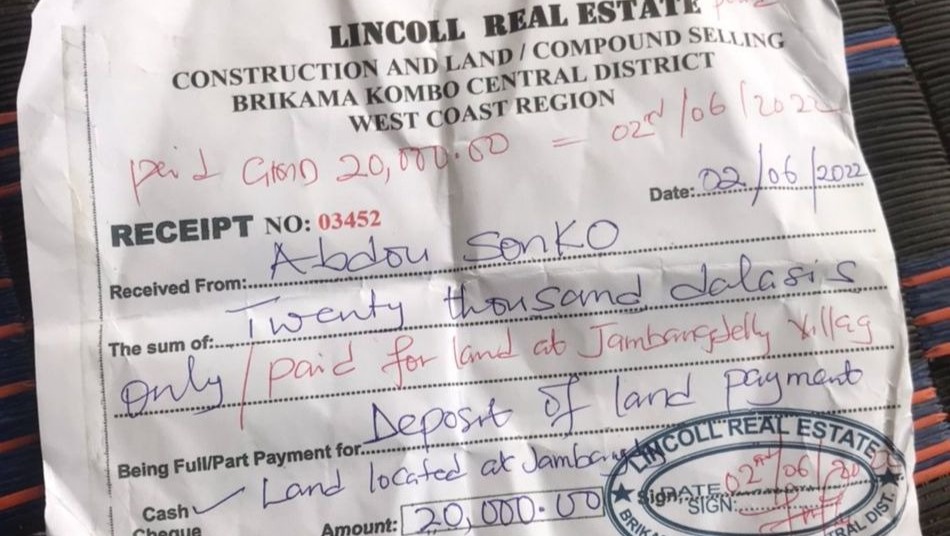 LINCOLL REAL ESTATE
CONSTRUCTION AND LAND / COMPOUND SELLING
BRIKAMA KOMBO CENTRAL DISTRICT
WEST COAST REGION
paid GMD 20,000.00 = 02nd/06/2022
Date: 02/06/2022
RECEIPT NO: 03452
Received From: Abdou Sonko
The sum of: Twenty thousand dalasis
only / paid for land at Jambangdelly Villag
Being Full/Part Payment for Deposit of land payment
Cash ✓ Land located at Jamban
Cheque Amount: 20,000.00
LINCOLL REAL ESTATE
Sign DATE 02nd/06/20
SIGN: